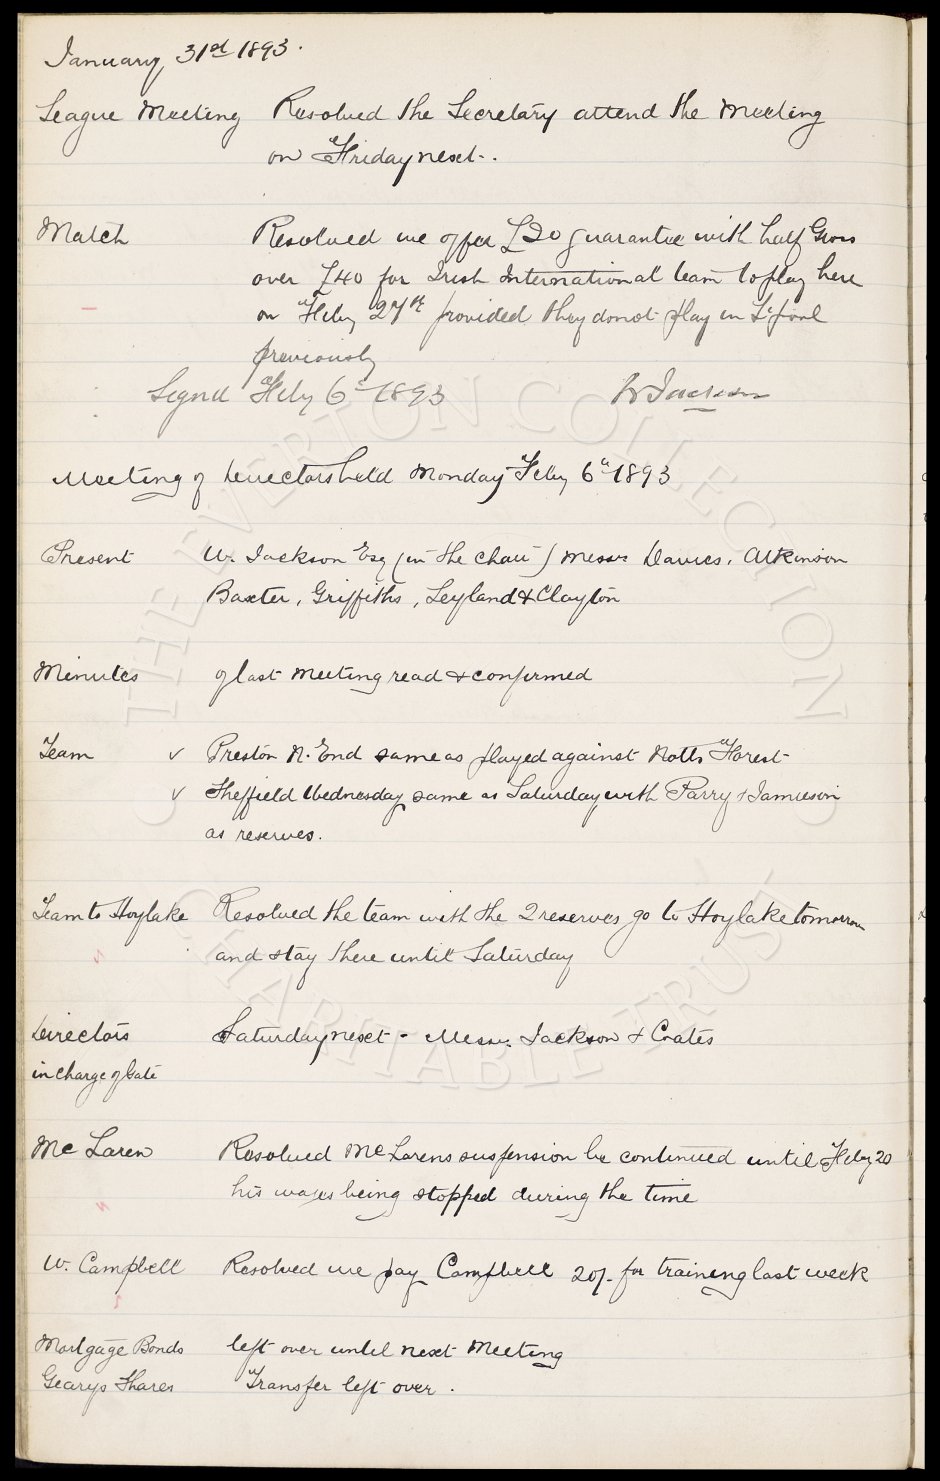 January 31st 1893.
League Meeting Resolved the Secretary attend the Meeting
on Friday next.
Match Resolved we offer £20 guarantee with half Gross
over £40 for Irish International team to play here
on Feby 27th provided they do not play in L'pool
previously
Signd Feby 6th 1893 W Jackson
Meeting of Directors held Monday Feby 6th 1893
Present W. Jackson Esq (in the chair) Messrs Davies, Atkinson
Baxter, Griffiths, Leyland & Clayton
Minutes of last meeting read & confirmed
Team v Preston N. End same as played against Notts Forest
v Sheffield Wednesday same as Saturday with Parry & Jamieson
as reserves.
Team to Hoylake Resolved the team with the 2 reserves go to Hoylake tomorrow
and stay there until Saturday
Directors Saturday next - Messrs Jackson & Coates
in charge of Gate
Mc Laren Resolved McLarens suspension be continued until Feby 20
his wages being stopped during the time
W. Campbell Resolved we pay Campbell 20/- for training last week
Mortgage Bonds left over until next Meeting
Gearys Shares Transfer left over.
THE EVERTON COLLECTION
CHARITABLE TRUST